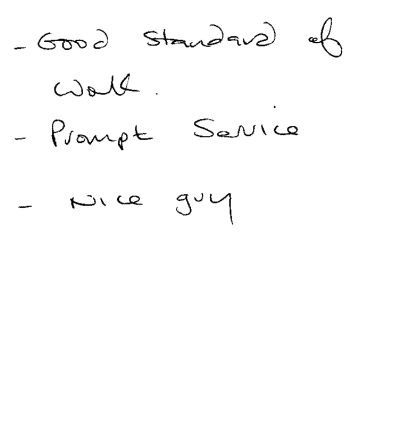 - Good standard of
work.
- Prompt Service
- Nice guy